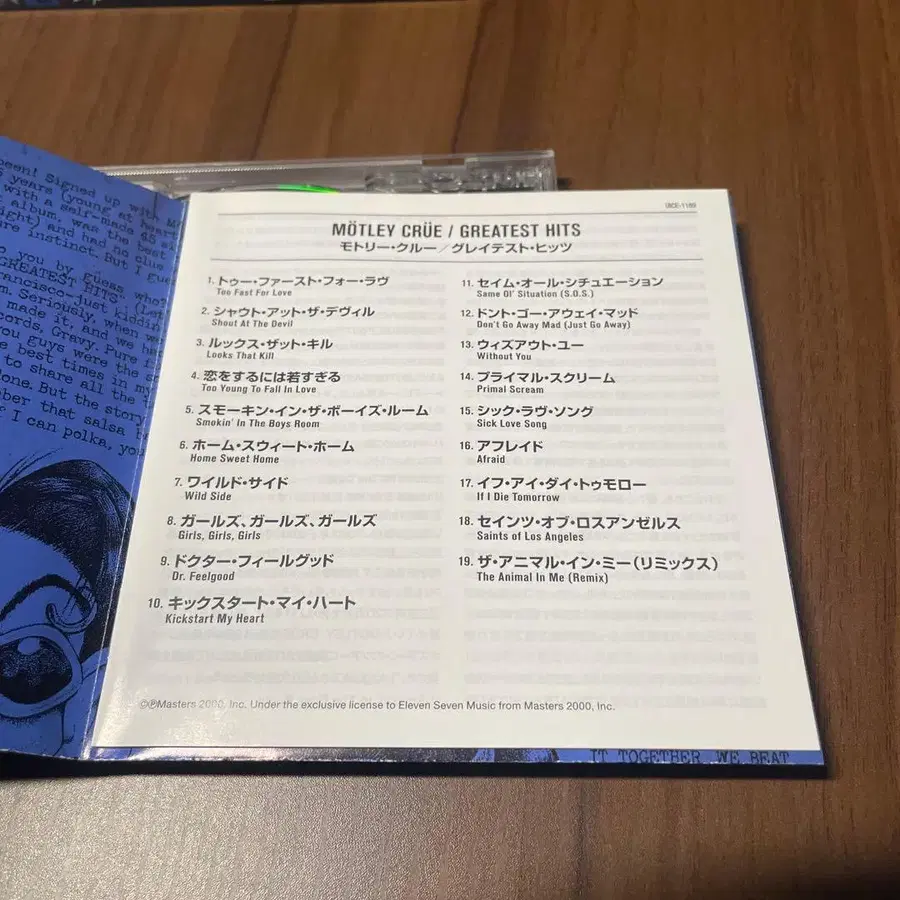 been! Signed
years (young at
with a self-made
album, was the best
ight) and had no clue
re instinct. But I gue
you by güess who?
GREATEST HITS" (Let
ancisco-just kiddin
m. Seriously, when w
made it, and we ha
cords, Gravy. Pure
you guys were the
e best times in my
to share all the
one. But the story
ber that salsa
I can polka, you
MÖTLEY CRÜE / GREATEST HITS
モトリー・クルー／グレイテスト・ヒッツ
1. トゥー・ファースト・フォー・ラヴ
Too Fast For Love
2. シャウト・アット・ザ・デヴィル
Shout At The Devil
3. ルックス・ザット・キル
Looks That Kill
4. 恋をするには若すぎる
Too Young To Fall In Love
5. スモーキン・イン・ザ・ボーイズ・ルーム
Smokin' In The Boys Room
6. ホーム・スウィート・ホーム
Home Sweet Home
7. ワイルド・サイド
Wild Side
8. ガールズ、ガールズ、ガールズ
Girls, Girls, Girls
9. ドクター・フィールグッド
Dr. Feelgood
10. キックスタート・マイ・ハート
Kickstart My Heart
11. セイム・オール・シチュエーション
Same Ol' Situation (S.O.S.)
12. ドント・ゴー・アウェイ・マッド
Don't Go Away Mad (Just Go Away)
13. ウィズアウト・ユー
Without You
14. プライマル・スクリーム
Primal Scream
15. シック・ラヴ・ソング
Sick Love Song
16. アフレイド
Afraid
17. イフ・アイ・ダイ・トゥモロー
If I Die Tomorrow
18. セインツ・オブ・ロスアンゼルス
Saints of Los Angeles
19. ザ・アニマル・イン・ミー（リミックス）
The Animal In Me (Remix)
©℗Masters 2000, Inc. Under the exclusive license to Eleven Seven Music from Masters 2000, Inc.
IT TOGETHER WE BEAT